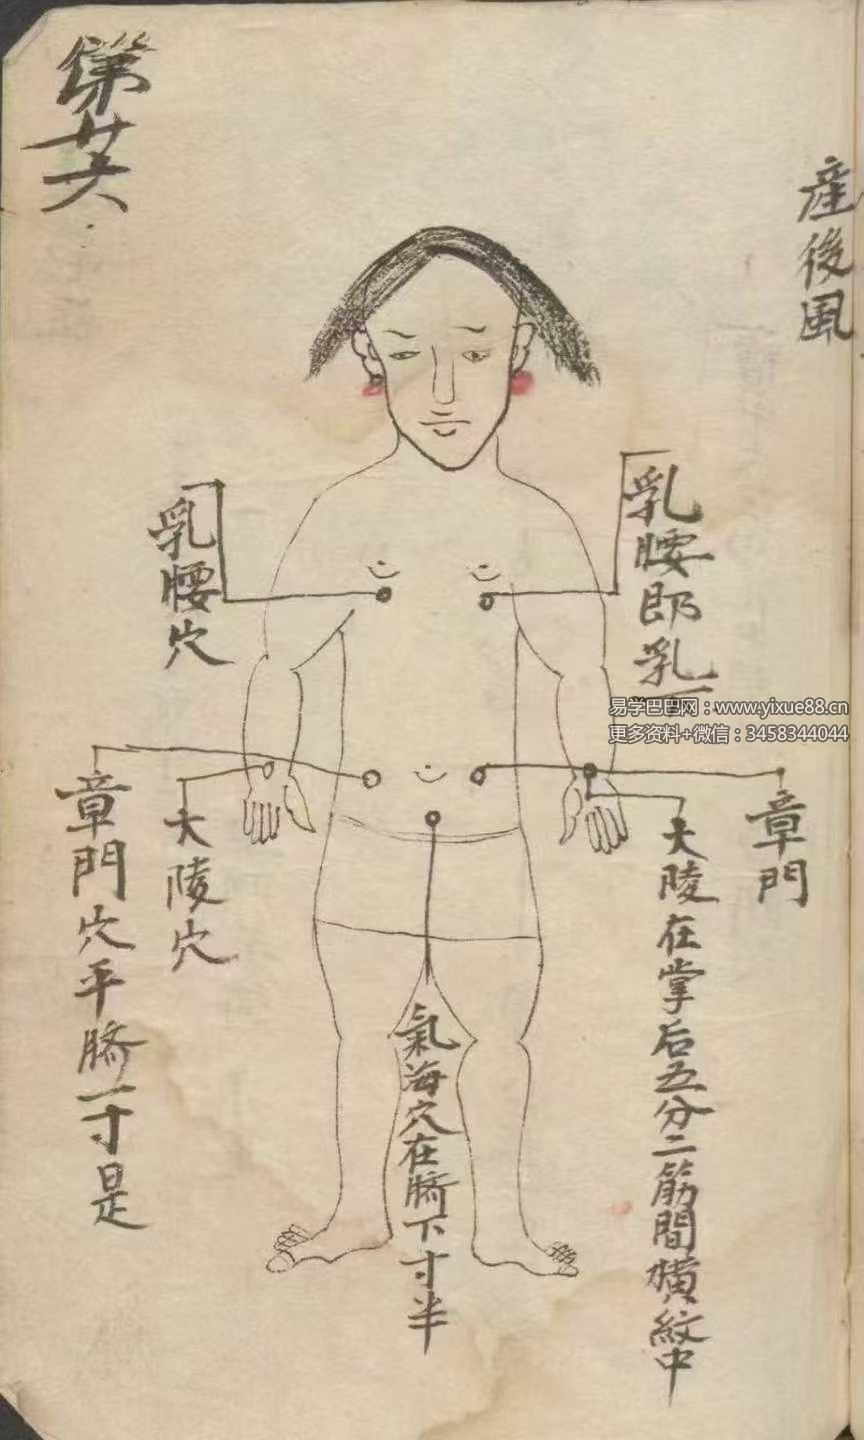 産後風
第廿六
乳腰即乳下
乳腰穴
章門
大陵在掌后五分二筋間横紋中
氣海穴在臍下寸半
大陵穴
章門穴平臍一寸是
易学巴巴网：www.yixue88.cn
更多资料+微信：3458344044